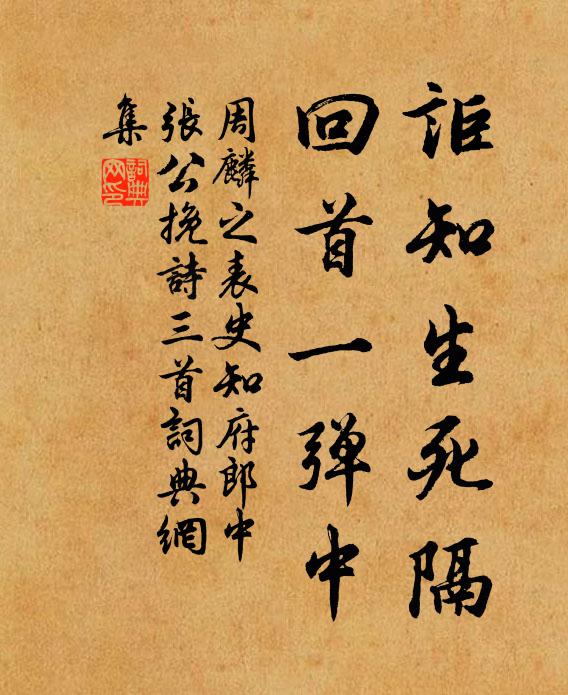 詎知生死隔
回首一弹中
周麟之表史知府郎中
張公挽詩三首詞典網
集
詞典
网印